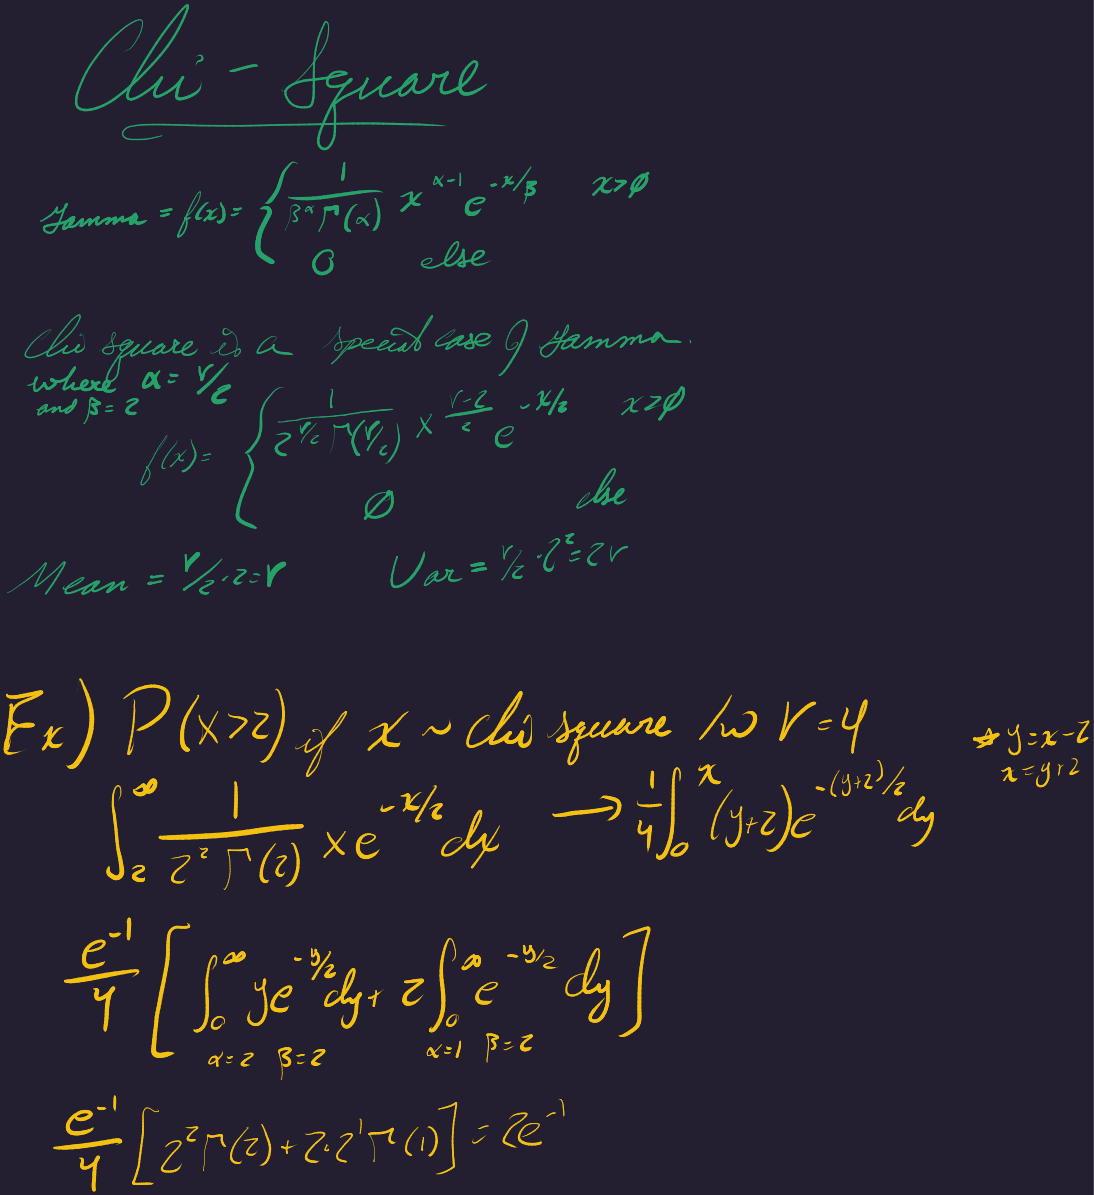 Chi - Square
Gamma = f(x) = { 1/(β^α Γ(α)) x^(α-1) e^(-x/β) x>0
0 else
Chi square is a special case of gamma.
where α = r/2
and β = 2
f(x) = { 1/(2^(r/2) Γ(r/2)) x^((r-2)/2) e^(-x/2) x>0
0 else
Mean = r/2 · 2 = r Var = r/2 · 2² = 2r
Ex) P(x>2) if x ~ chi square w r = 4
* y = x-2
x = y+2
∫_2^∞ 1/(2² Γ(2)) x e^(-x/2) dx → 1/4 ∫_0^x (y+2) e^(-(y+2)/2) dy
e^-1/4 [ ∫_0^∞ y e^(-y/2) dy + 2 ∫_0^∞ e^(-y/2) dy ]
α=2 β=2 α=1 β=2
e^-1/4 [ 2² Γ(2) + 2·2^1 Γ(1) ] = 2e^-1